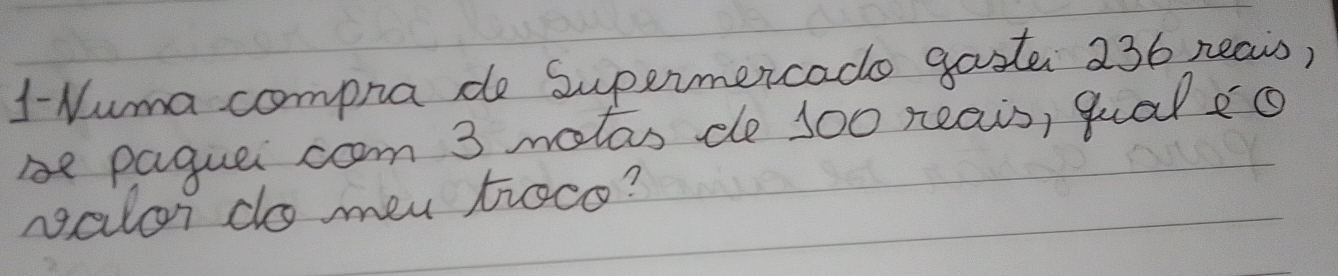 1-Numa compra de Supermercado gastei 236 reais,
se paguei com 3 notas de 100 reais, qual é o
valor do meu troco?